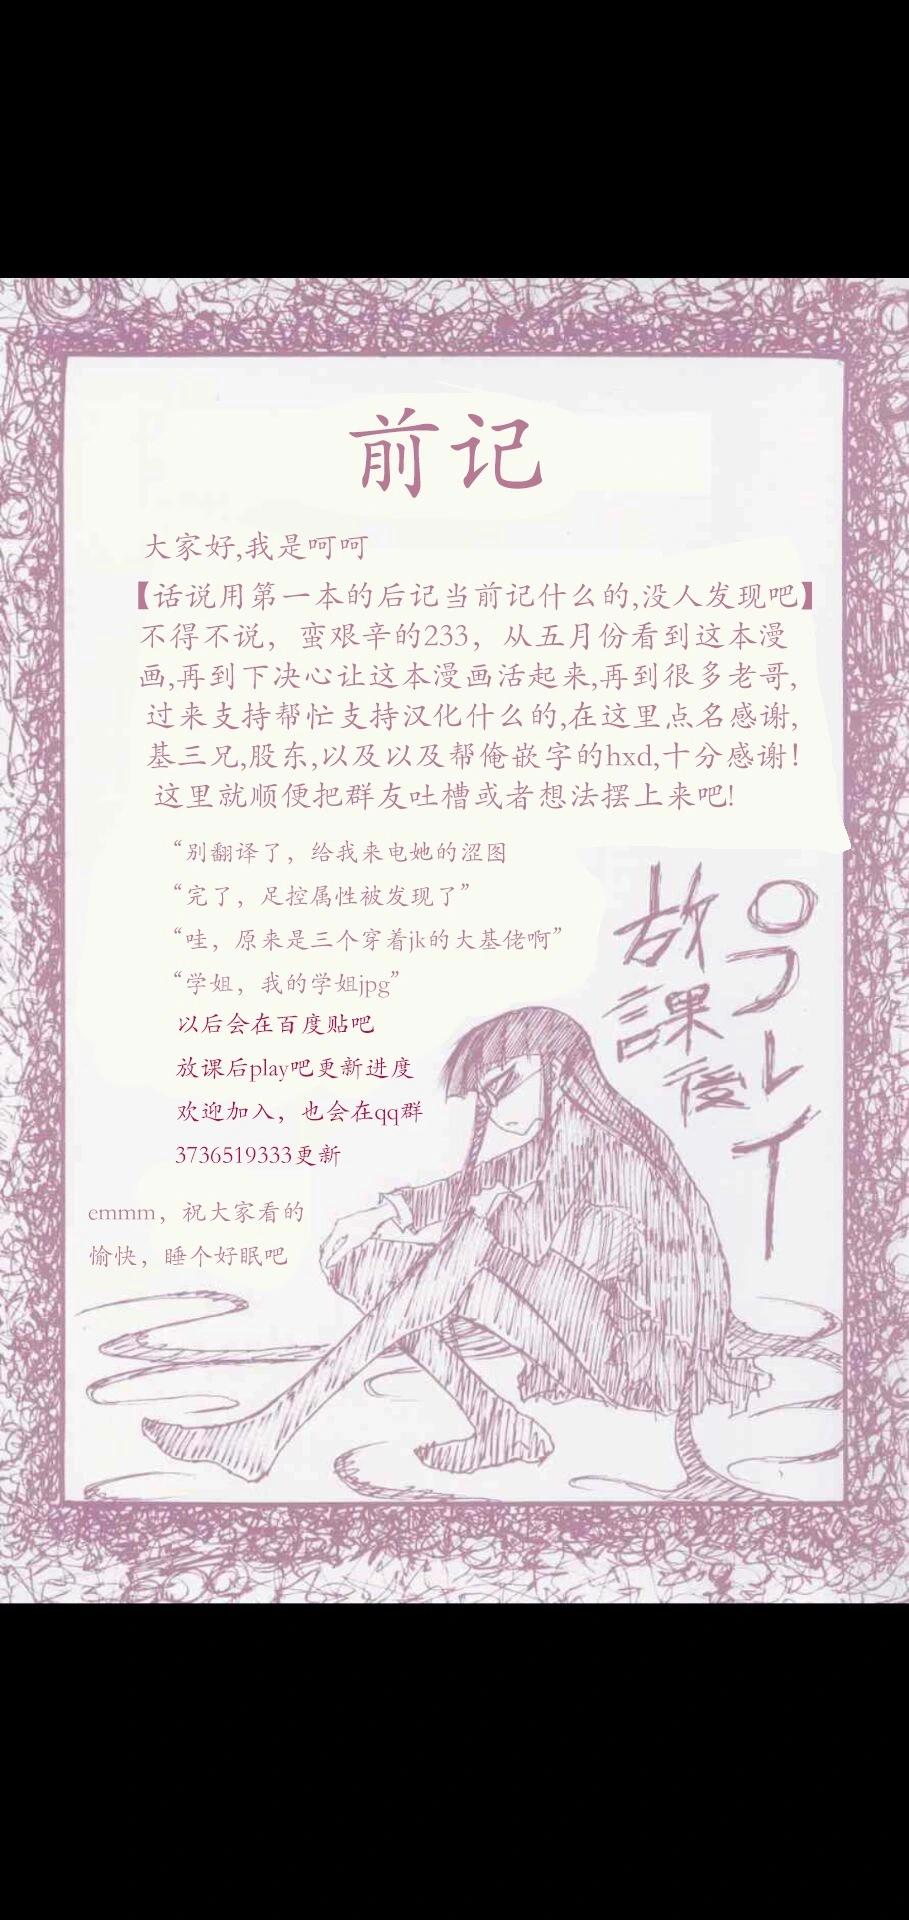 前记
大家好,我是呵呵
【话说用第一本的后记当前记什么的,没人发现吧】
不得不说，蛮艰辛的233，从五月份看到这本漫
画,再到下决心让这本漫画活起来,再到很多老哥,
过来支持帮忙支持汉化什么的,在这里点名感谢,
基三兄,股东,以及以及帮俺嵌字的hxd,十分感谢!
这里就顺便把群友吐槽或者想法摆上来吧!
“别翻译了，给我来电她的涩图
“完了，足控属性被发现了”
“哇，原来是三个穿着jk的大基佬啊”
“学姐，我的学姐jpg”
以后会在百度贴吧
放课后play吧更新进度
欢迎加入，也会在qq群
3736519333更新
emmm，祝大家看的
愉快，睡个好眠吧
放課後
プレイ